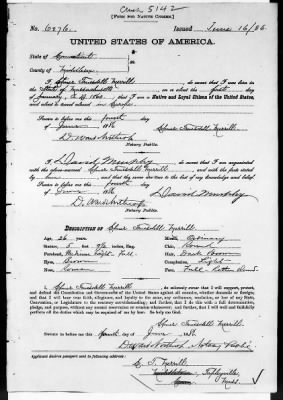 Case 5142
[FORM FOR NATIVE CITIZEN.]
No. 6276. Issued June 16/86
UNITED STATES OF AMERICA.
State of Connecticut
County of Middlesex
I, Truesdell Merrill, do swear that I was born in the
State of Massachusetts on or about the first day of
January, 1860, that I am a Native and Loyal Citizen of the United States,
and about to travel abroad in Europe
Sworn to before me this fourth day
of June 1886 Truesdell Merrill
D. Ward Northrop
Notary Public.
I, David Murphy, do swear that I am acquainted
with the above-named Truesdell Merrill and with the facts stated
by him are true to the best of my knowledge and belief.
Sworn to before me this fourth day
of June 1886 David Murphy
D. Ward Northrop
Notary Public.
DESCRIPTION OF Truesdell Merrill
Age, 26 years. Mouth, Ordinary
Stature, 5 feet inches, Eng. Chin, Round
Forehead, Medium height Full Hair, Dark Brown
Eyes, Complexion, Light
Nose, Roman Face, Full
I, Truesdell Merrill, do solemnly swear that I will support, protect,
and defend the Constitution and Government of the United States against all enemies, whether domestic or foreign;
and that I will bear true faith, allegiance, and loyalty to the same, any ordinance, resolution, or law of any State,
Convention, or Legislature to the contrary notwithstanding; and further, that I do this with a full determination,
pledge, and purpose, without any mental reservation or evasion whatsoever; and further, that I will well and faithfully
perform all the duties which may be required of me by law: So help me God.
Truesdell Merrill
Sworn to before me this fourth day of June 1886
D. Ward Northrop Notary Public
Applicant desires passport sent to following address:
T. Merrill
Mass.